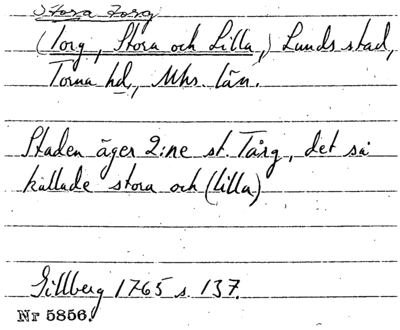 Stora Torg
(Torg, Stora och Lilla,) Lunds stad,
Torna hd, Mhs. län.
Staden äger 2:ne st. Tårg, det så
kallade stora och (lilla)
Gillberg 1765 s. 137.
Nr 5856.